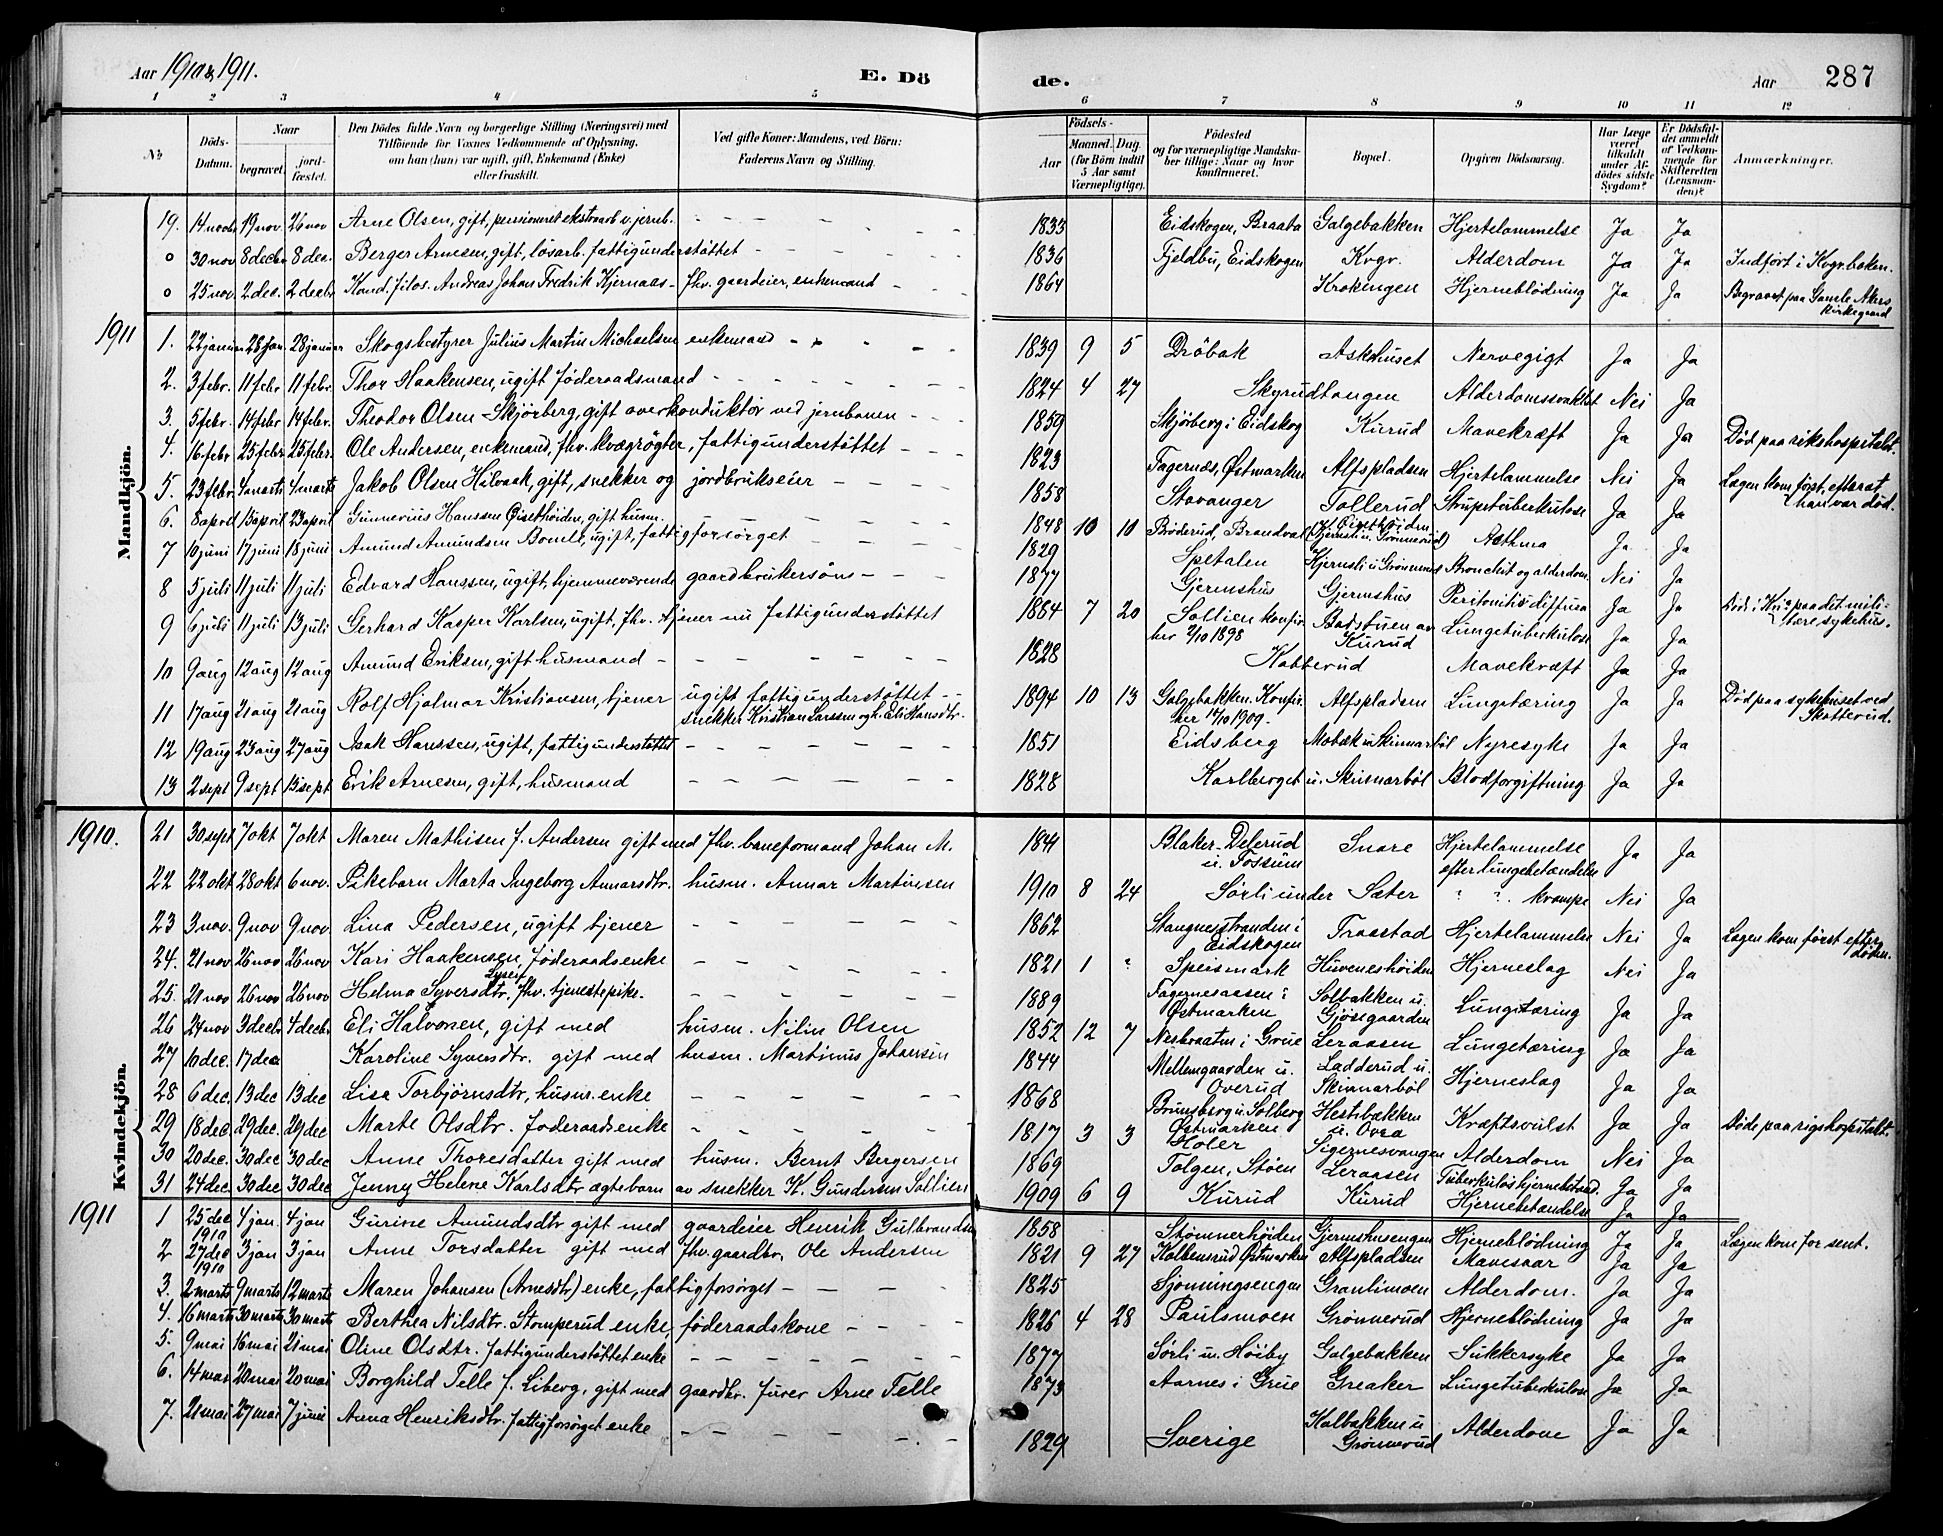 Aar 1910 & 1911.
E. Dö
de.
Aar
287
1 2 3 4 5 6 7 8 9 10 11 12
№
Döds-Datum.
Naar
begravet.
jord-fæstet.
Den Dödes fulde Navn og borgerlige Stilling (Næringsvei) med
Tilföiende for Voxnes Vedkommende af Oplysning,
om han (hun) var ugift, gift, Enkemand (Enke)
eller fraskilt.
Ved gifte Koner: Mandens, ved Börn:
Faderens Navn og Stilling.
Födsels-
Aar
Maaned. Dag.
(for Börn indtil
5 Aar samt
Værnepligtige).
Födested
og for værnepligtige Mandska-
ber tillige: Naar og hvor
konfirmeret.
Bopæl.
Opgiven Dödsaarsag.
Har Læge
været
tilkaldt
under Af-
dödes sidste
Sygdom?
Er Dödsfal-
det anmeldt
af Vedkom-
mende for
Skifteretten
(Lensman-
den)?
Anmærkninger.
Mandkjön.
19. 14 novbr 19 nov. 26 nov Arne Olsen, gift, pensioneret ekstraarb. v. jernb. 1833 Eidskogen, Braata Galgebakken Hjertelammelse Ja Ja
0 30 nov 8 decbr 8 dec. Berger Arnesen, gift, lösarb. fattigunderstöttet 1836 Fjeldbu, Eidskogen Kvgr. Alderdom Ja Ja Indført i Kvgr.boken.
0 25 nov. 2 dec. 2 decbr Kand. filos. Andreas Johan Fredrik Kjernaas fhv. gaardeier, enkemand 1864 Krokingen Hjerneblödning Ja Ja Begravet paa Gamle Akers kirkegaard
1911
1. 22 januar 28 jan. 28 januar Skogbestyrer Julius Martin Michaelsen enkemand 1839 9 5 Dröbak Askhuset Nervegigt Ja Ja
2. 3 febr. 11 febr 11 febr. Thor Haakensen, ugift Föderaadsmand 1824 4 27 Skyrudtangen Alderdomssvakhet Nei Ja
3. 5 febr. 14 febr 14 febr. Theodor Olsen Skjörberg, gift overkonduktör ved jernbanen 1859 Skjörberg i Eidskog Kurud Mavekræft Ja Ja Död paa rikshospitalet.
4. 16 febr 25 febr 25 febr. Ole Andersen, enkemand, fhv. kvægrögter, fattigunderstöttet 1823 Fagernæs, Østmarken Alfspladsen Hjertelammelse Nei Ja Lægen kom först, efterat han var död.
5. 23 febr. 4 marts 4 marts Jakob Olsen Hilvaak, gift, snekker og jordbrukseier 1858 Stavanger Tollerud Strupetuberkulose Ja Ja
6. 8 april 15 april 23 april Gunnerius Hanssen Øisethöiden, gift husm. 1848 10 10 Bröderud, Brandval Øisethöiden (Gjernsli u. Grönnerud) Asthma Ja Ja
7 10 juni 17 juni 18 juni Amund Amundsen Bomli, ugift, fattigforsörget 1829 Spetalen Hjernsli u Grönnerud Bronchit og alderdom. Nei Ja
8 5 juli 11 juli 11 juli Edvard Hanssen, ugift, hjemmeværende gaardbrukersön 1877 Gjermshus Gjermshus Peritonitis diffusa Ja Ja
9 6 juli 11 juli 13 juli Gerhard Kasper Karlsen, ugift, fhv. tjener nu fattigunderstöttet 1884 7 20 Sollien konfir. her 2/10 1898 Badstuen av Kurud Lungetuberkulose Ja Ja Död i Kr.a paa det militære sykehus.
10 9 aug 12 aug 12 aug Amund Eriksen, gift husmand 1828 Kobberud Mavekræft Ja Ja
11 17 aug 21 aug 21 aug Rolf Hjalmar Kristiansen, tjener ugift fattigunderstöttet snekker Kristian Larssen og h. Eli Hansdtr. 1894 10 13 Galgebakken. Konfir. her 17/10 1909. Alfspladsen Lungetæring Ja Ja Död paa sykehuset ved Skotterud.
12 19 aug 23 aug 27 aug Isak Hanssen, ugift, fattigunderstöttet 1851 Eidsberg Mobæk u. Skinnarböl Nyresyke Ja Ja
13 2 sept 9 sept 15 sept Erik Arnesen, gift, husmand 1828 Karlberget u. Skinnarböl Blodforgiftning Ja Ja
Kvindekjön.
1910.
21 30 sept 7 okt 7 okt Maren Mathisen f. Andersen gift med fhv. baneformand Johan M. 1844 Blaker. Delerud u. Fossum Snare Hjertelammelse efter Lungebetændelse Ja Ja
22 22 okt 28 okt 6 nov. Pikebarn Marta Ingeborg Annarsdtr. husm. Annar Martinsen 1910 8 24 Sörli under Sæter " " krampe Nei Ja
23 3 nov. 9 nov 9 nov. Lina Pedersen, ugift tjener 1862 Stangnesstranden i Eidskogen Traastad Hjertelammelse Nei Ja Lægen kom först efter döden.
24. 21 nov 26 nov 26 nov Kari Haakensen, Föderaadsenke 1821 1 " Speismark Huveneshöiden Hjerneslag Nei Ja
25. 21 nov 26 nov 26 nov Helma Syversdtr. fhv. tjenestepike. 1889 Fagernesaasen i Østmarken Solbakken u. Gjösegaarden Lungetæring Ja Ja
26 24 nov 3 decbr 4 decbr. Eli Halvorsen, gift med husm. Nilin Olsen 1852 12 7 Nesbraaten i Grue Leraasen Lungetæring Ja Ja
27 10 dec. 17 dec Karoline Syversdtr. gift med husm. Martinus Johansen 1844 Mellemgaarden u. Overud Ladderud u. Skinnarböl Hjerneslag Ja Ja
28 6 dec. 13 dec 13 dec Lisa Torbjörnsdtr, husm. enke 1868 Brunsberg u. Solberg Østmarken Hestebækken u. Ovea Kræftsvulst Ja Ja Döde paa rigshospitalet.
29 18 dec 29 dec. 29 dec Marte Olsdtr. föderaadsenke 1817 3 3 Holer Sigernesvangen Alderdom Nei Ja
30 20 dec. 30 dec 30 dec Anne Thoresdatter gift med husm. Bernt Bergersen 1869 Tolgen, Stöen Leraasen Tuberkulös hjernebetænd. Ja Ja
31 24 dec. 30 dec 30 dec Jenny Helene Karlsdtr ægtebarn av snekker K. Gundersen Sollien 1909 6 9 Kurud Kurud Hjernebetændelse Ja Ja
1911
1 25 dec 1910 4 jan. 4 jan Gurine Amundsdtr gift med gaardeier Henrik Gulbrandsen 1858 Stömnerhöiden Gjermshusengen Hjerneblödning Ja Ja Lægen kom for sent.
2 27 dec 1910 3 jan 3 jan Anne Torsdatter gift med fhv. gaardbr. Ole Andersen 1821 9 27 Kolbensrud Østmarken Alfspladsen Mavesaar Ja Ja
3. 2 marts 9 marts 12 marts Maren Johansen (Arnesdtr) enke, fattigforsörget 1825 Sjonningsengen Granlimoen Alderdom. Ja Ja
4. 16 marts 30 marts 30 marts Berthea Nilsdtr. Stomperud enke, föderaadskone 1826 4 28 Paulsmoen Grönnerud Hjerneblödning Ja Ja
5. 9 mai 16 mai 21 mai Oline Olsdtr. fattigunderstöttet enke 1877 Sörli u. Höiby Galgebakken Sukkersyke Ja Ja
6. 14 mai 20 mai 20 mai Borghild Telle f. Liberg, gift med gaardbr. furer Arne Telle 1873 Aarnes i Grue Greaker Lungetuberkulose Ja Ja
7. 21 mai 27 mai 7 juni Anna Henriksdtr. fattigforsörget enke 1829 Sverige Kolbakken u Grönnerud Alderdom Ja Ja